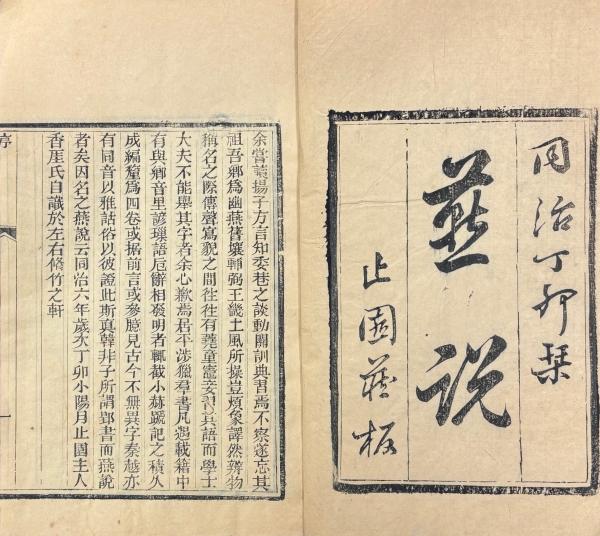 同治丁卯栞
燕説
止園藏板
余嘗讀揚子方言知委巷之談動關訓典習焉不察遂忘其
祖吾鄉爲幽燕舊壤輔弼王畿土風所操豈煩象譯然辨物
稱名之際傳聲寫貌之間往往有蕘童竈妾習其語而學士
大夫不能舉其字者余心歉焉居平涉獵羣書凡遇載籍中
有與鄉音里諺瑣語卮辭相發明者輒截小赫蹏記之積久
成編釐爲四卷或据前言或參臆見古今不無異字秦越亦
有同音以雅詁俗以彼證此斯真韓非子所謂郢書而燕說
者矣因名之燕說云同治六年歲次丁卯小陽月止園主人
香厓氏自識於左右脩竹之軒
序
一